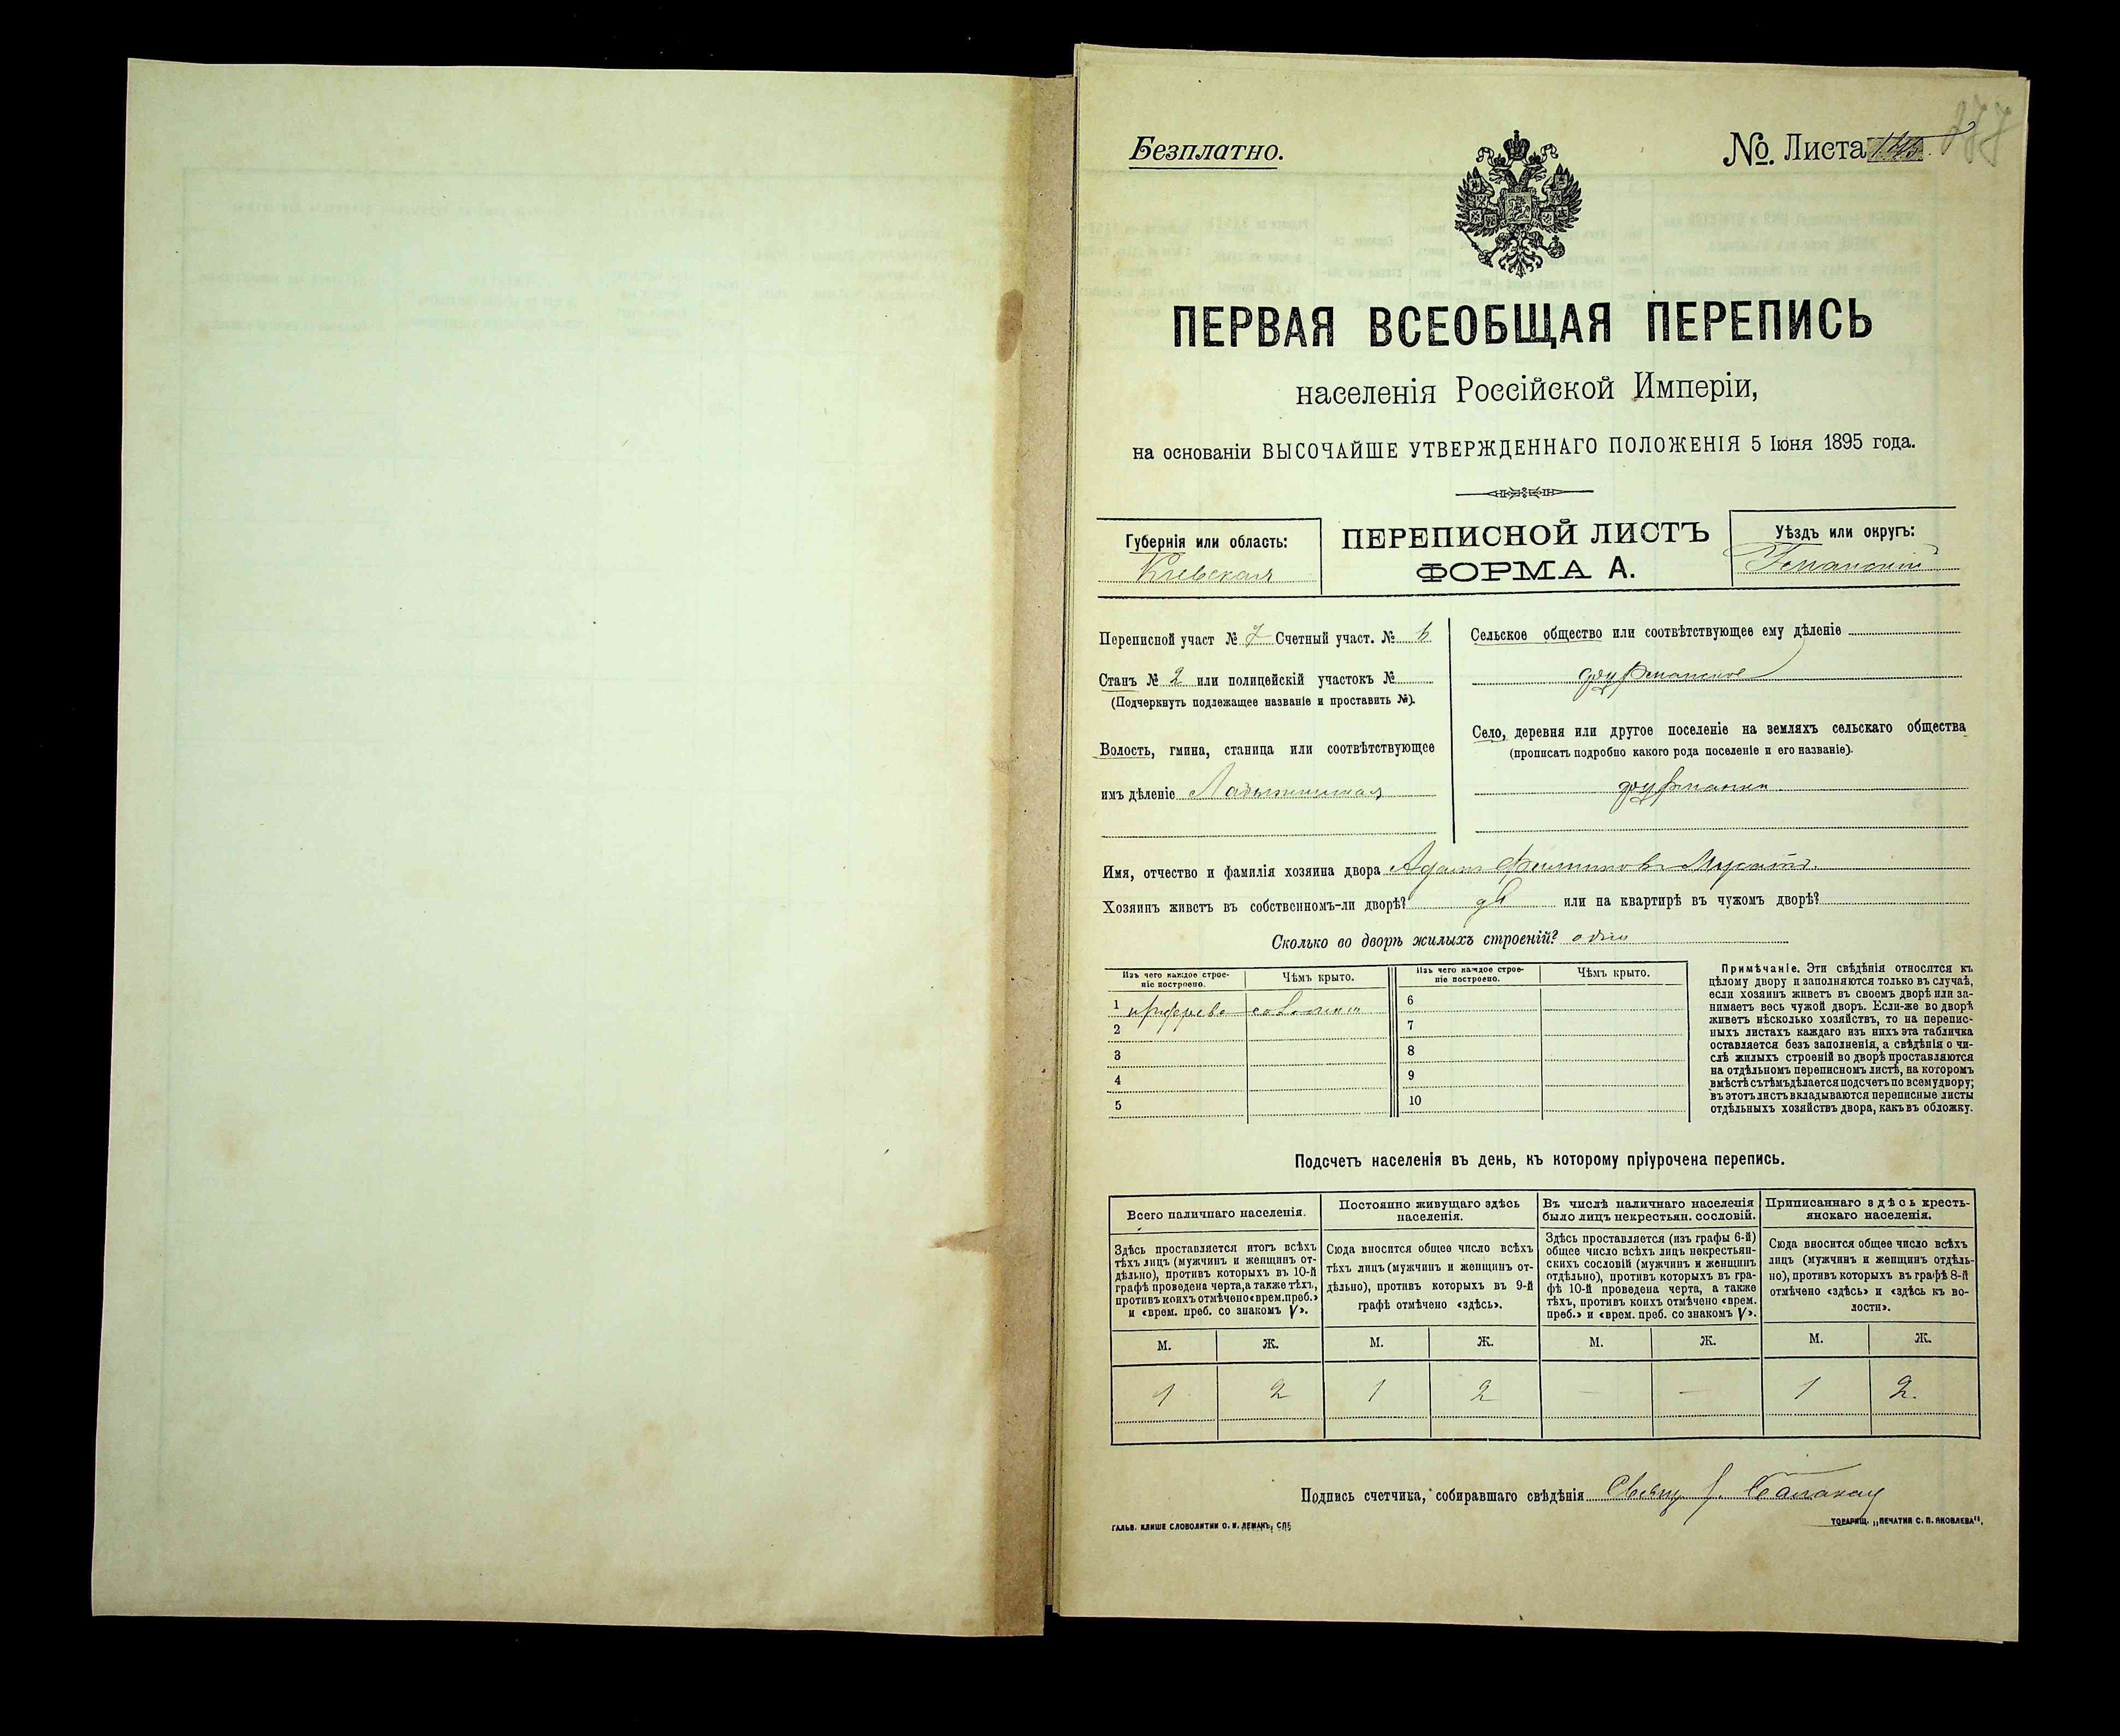 Безплатно.
№. Листа
ПЕРВАЯ ВСЕОБЩАЯ ПЕРЕПИСЬ
населенія Россійской Имперіи,
на основаніи ВЫСОЧАЙШЕ УТВЕРЖДЕННАГО ПОЛОЖЕНІЯ 5 Іюня 1895 года.
Губернія или область:
Кіевская
ПЕРЕПИСНОЙ ЛИСТЪ
ФОРМА А.
Уѣздъ или округъ:
Уманскій
Переписной участ № 7 Счетный участ. №
Станъ № 2 или полицейскій участокъ №
(Подчеркнуть подлежащее названіе и проставить №).
Волость, гмина, станица или соотвѣтствующее
имъ дѣленіе Ладыжинская
Сельское общество или соотвѣтствующее ему дѣленіе
Село, деревня или другое поселеніе на земляхъ сельскаго общества
(прописать подробно какого рода поселеніе и его названіе).
Имя, отчество и фамилія хозяина двора Адамъ Филипповъ
Хозяинъ живетъ въ собственномъ-ли дворѣ? да или на квартирѣ въ чужомъ дворѣ?
Сколько во дворѣ жилыхъ строеній? одно
Изъ чего каждое строе-
ніе построено.
Чѣмъ крыто.
Изъ чего каждое строе-
ніе построено.
Чѣмъ крыто.
1
2
3
4
5
6
7
8
9
10
Примѣчаніе. Эти свѣдѣнія относятся къ
цѣлому двору и заполняются только въ случаѣ,
если хозяинъ живетъ въ своемъ дворѣ или за-
нимаетъ весь чужой дворъ. Если-же во дворѣ
живетъ нѣсколько хозяйствъ, то на перепис-
ныхъ листахъ каждаго изъ нихъ эта табличка
оставляется безъ заполненія, а свѣдѣнія о чи-
слѣ жилыхъ строеній во дворѣ проставляются
на отдѣльномъ переписномъ листѣ, на которомъ
вмѣстѣ съ тѣмъ дѣлается подсчетъ по всему двору;
въ этотъ листъ вкладываются переписные листы
отдѣльныхъ хозяйствъ двора, какъ въ обложку.
Подсчетъ населенія въ день, къ которому пріурочена перепись.
Всего наличнаго населенія.
Постоянно живущаго здѣсь
населенія.
Въ числѣ наличнаго населенія
было лицъ некрестьян. сословій.
Приписаннаго здѣсь кресть-
янскаго населенія.
Здѣсь проставляется итогъ всѣхъ
тѣхъ лицъ (мужчинъ и женщинъ от-
дѣльно), противъ которыхъ въ 10-й
графѣ проведена черта, а также тѣхъ,
противъ коихъ отмѣчено «врем. преб.»
и «врем. преб. со знакомъ V».
Сюда вносится общее число всѣхъ
тѣхъ лицъ (мужчинъ и женщинъ от-
дѣльно), противъ которыхъ въ 9-й
графѣ отмѣчено «здѣсь».
Здѣсь проставляется (изъ графы 6-й)
общее число всѣхъ лицъ некрестьян-
скихъ сословій (мужчинъ и женщинъ
отдѣльно), противъ которыхъ въ гра-
фѣ 10-й проведена черта, а также
тѣхъ, противъ коихъ отмѣчено «врем.
преб.» и «врем. преб. со знакомъ V».
Сюда вносится общее число всѣхъ
лицъ (мужчинъ и женщинъ отдѣль-
но), противъ которыхъ въ графѣ 8-й
отмѣчено «здѣсь» и «здѣсь къ во-
лости».
М. Ж. М. Ж. М. Ж. М. Ж.
1 2 1 2 — — 1 2.
Подпись счетчика, собиравшаго свѣдѣнія
ГАЛЬВ. КЛИШЕ СЛОВОЛИТНИ О. И. ЛЕМАНЪ, СПБ
ТОВАРИЩ. „ПЕЧАТНЯ С. П. ЯКОВЛЕВА“.